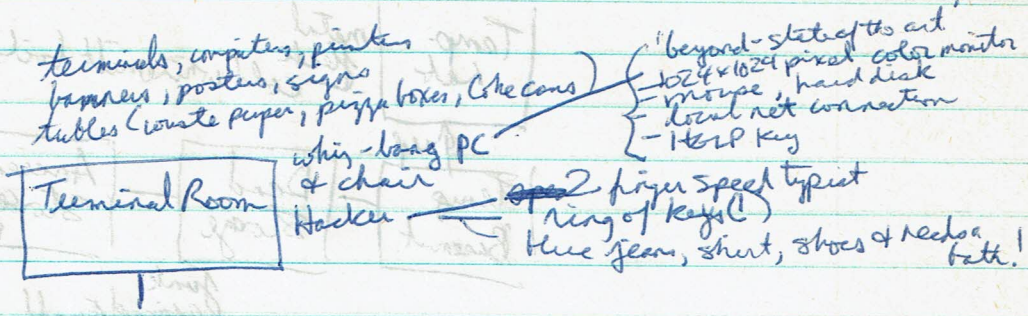 terminals, computers, printers
banners, posters, signs
tables (waste paper, pizza boxes, Coke cans)
whiz-bang PC
& chair
Hacker
Terminal Room
"beyond-state of the art
- 1024x1024 pixel color monitor
- mouse, hard disk
- local net connection
- HELP key
2 finger speed typist
ring of keys (!)
blue jeans, shirt, shoes & needs a
bath!